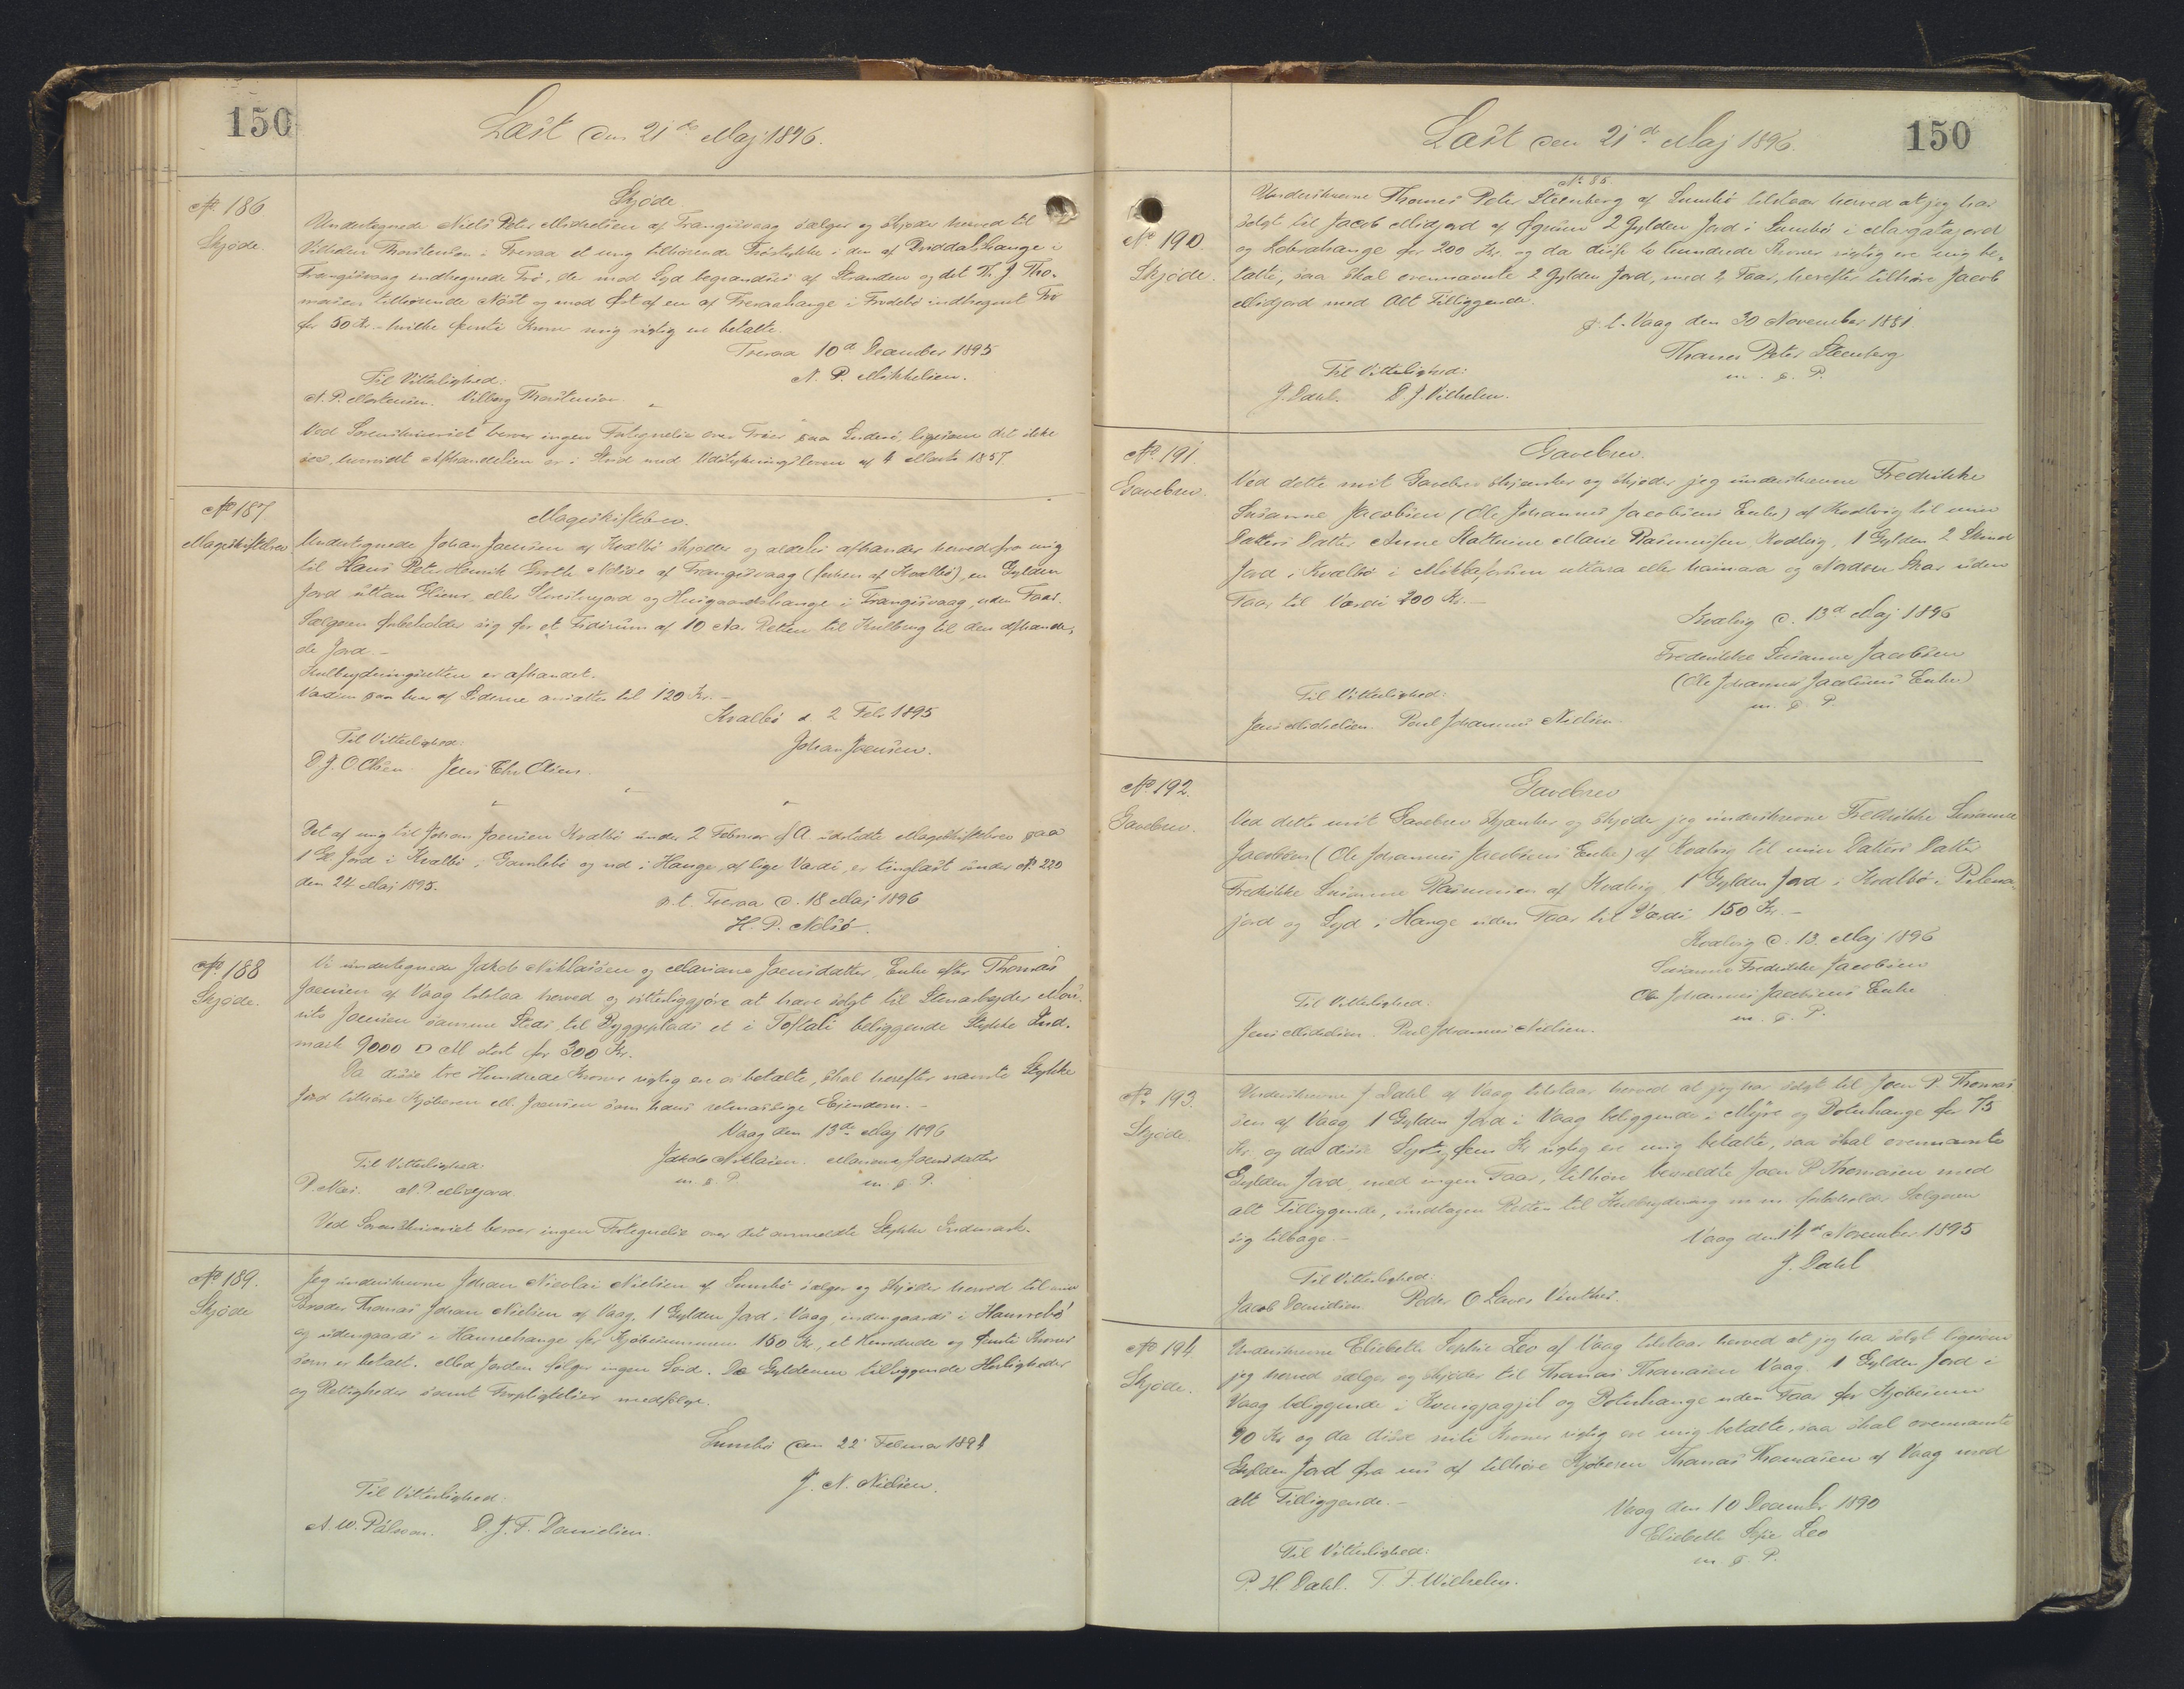 150
Læst den 21de Maj 1896.
No. 186
Skjøde.
Skjøde
Undertegnede Niels Peter Michelsen af Trangisvaag sælger og skjøder herved til
Vilhelm Thorstensen i Tveraa et mig tilhørende Trøstykke i den af Prøddalshauge i
Trangisvaag indhegnede Trø, der mod Syd begrændses af Stranden og det Th. J. Tho-
masen tilhørende Nøst og mod Øst af en af Tveraahauge i Frodebø indhegnet Trø
for 50 Kr. hvilke femti Kroner mig rigtig ere betalte.
Tveraa 10d December 1895
N. P. Mikkelsen.
Til Vitterlighed:
A. P. Mortensen. Vilborg Thorstenson.
Ved Sorenskriveriet beror ingen Fortegnelse over Trøer paa Suderø, ligesom det ikke
sees, hvorvidt Afhændelsen er i Strid med Udstykningsloven af 4 Marts 1857.
No 187
Mageskiftebrev
Mageskiftebrev.
Undertegnede Johan Joensen af Kvalbø skjøder og aldeles afhænder herved fra mig
til Hans Peter Henrik Groth Nolsøe af Trangisvaag (forhen af Kvalbø), en Gylden
Jord uttan Eliens, eller Storestuejord og Husgaardshauge i Trangisvaag, uden Faar.
Sælgeren forbeholder sig for et Tidsrum af 10 Aar Retten til Kulbrug til den afhænde-
de Jord.-
Kulbrydningsretten er afhændet.
Værdien paa hver af Siderne ansættes til 120 Kr.-
Kvalbø d. 2 Feb. 1895
Johan Joensen.
Til Vitterlighed:
D. J. O. Olsen. Jens Chr. Olsen.
Det af mig til Johan Joensen Kvalbø under 2 Februar f. A. udstedte Mageskiftebrev paa
1 Gl. Jord i Kvalbø, i Gamlebø og nd i Hauge, af lige Værdi, er tinglæst under No 220
den 24 Maj 1895.
p.t. Tveraa d. 18 Maj 1896
H. P. Nolsø.
No. 188
Skjøde.
Vi undertegnede Jakob Niklassen og Mariane Joensdatter, Enke efter Thomas
Joensen af Vaag tilstaa herved og vitterliggjøre at have solgt til Stenarbejder Mou-
rits Joensen samme Steds, til Byggeplads et i Toftali beliggende Stykke Ind-
mark 9000 □ Al stort for 300 Kr.
Da disse tre Hundrede Kroner rigtig ere os betalte, skal herefter nævnte Stykke
Jord tilhøre Kjøberen M. Joensen som hans retmæssige Ejendom.-
Vaag den 13de Maj 1896
Jakob Niklasen. Mariane Joensdatter
m. f. P. m. f. P.
Til Vitterlighed:
P. Næs. N. P. Midjord.
Ved Sorenskriveriet beror ingen Fortegnelse over det ommeldte Stykke Indmark.
No 189.
Skjøde
Jeg underskrevne Johan Nicolai Nielsen af Sumbø sælger og skjøder herved til min
Broder Thomas Johan Nielsen af Vaag, 1 Gylden Jord i Vaag, indengaards i Hannebø
og udengaards i Hannehauge for Kjøbesummen 150 Kr, et Hundrede og femti Kroner
som er betalt. Med Jorden følger ingen Soid. De Gyldenen tilliggende Herligheder
og Rettigheder samt Forpligtelser medfølger.
Sumbø den 22 Februar 1894
J. N. Nielsen.
Til Vitterlighed:
A. W. Pálsson. D. J. F. Danielsen.
Læst den 21de Maj 1896.
150
No 190
Skjøde.
No 85.
Underskrevne Thomas Peter Steenberg af Sumbø tilstaar herved at jeg har
solgt til Jacob Midjord af Øgrum 2 Gylden Jord i Sumbø i Margatajord
og Hobrahauge for 200 Kr. og da disse to hundrede Kroner rigtig ere mig be-
talte, saa skal ovennævnte 2 Gylden Jord, med 2 Faar, herefter tilhøre Jacob
Midjord med Alt Tilliggende.
p. t. Vaag den 30 November 1881
Thomas Peter Steenberg
m. f. P.
Til Vitterlighed:
J. Dahl. D. J. Vilhelm.
No. 191.
Gavebrev.
Gavebrev.
Ved dette mit Gavebrev skjænker og skjøder jeg underskrevne Fredrikke
Susanne Jacobsen (Ole Johannes Jacobsens Enke) af Kvalvig til min
Datters Datter Anne Kathrine Marie Rasmussen Kvalvig, 1 Gylden 2 Skind
Jord i Kvalbø i Mikkajørum uttara eller haimara og Nordur Skar uden
Faar til Værdi 200 Kr.-
Kvalvig d. 13d Maj 1896
Fredrikke Susanne Jacobsen
(Ole Johannes Jacobsens Enke)
m. f. P.
Til Vitterlighed:
Jens Michelsen. Poul Johannes Nielsen
No 192.
Gavebrev.
Gavebrev
Ved dette mit Gavebrev skjænker og skjøder jeg underskrevne Fredrikke Susanne
Jacobsen (Ole Johannes Jacobsens Enke) af Kvalvig til min Datters Datter
Fredrikke Susanne Rasmussen af Kvalvig 1 Gylden Jord i Kvalbø i Pilena-
jord og Syd i Hauge uden Faar til Værdi 150 Kr.-
Kvalvig d. 13. Maj 1896
Susanne Fredrikke Jacobsen
Ole Johannes Jacobsens Enke
m. f. P.
Til Vitterlighed:
Jens Michelsen. Poul Johannes Nielsen.
No. 193.
Skjøde.
Underskrevne J. Dahl af Vaag tilstaar herved at jeg har solgt til Joen P. Thomas
sen af Vaag 1 Gylden Jord i Vaag beliggende i Myre og Botnhauge for 75
Kr. og da disse Syvtifem Kr rigtig ere mig betalte, saa skal ovennævnte
Gylden Jord, med ingen Faar, tilhøre bemeldte Joen P. Thomasen med
alt Tilliggende, undtagen Retten til Kulbrydning m m forbeholder Sælgeren
sig tilbage.-
Vaag den 14d November 1895
J. Dahl
Til Vitterlighed:
Jacob Danielsen Peder O Laves Vinther.
No 194
Skjøde.
Underskrevne Elisebeth Sophie Leo af Vaag tilstaar herved at jeg har solgt ligesom
jeg herved sælger og skjøder til Thomas Thomasen Vaag. 1 Gylden Jord i
Vaag beliggende i Kvungjagjil og Botnhauge uden Faar for Kjøbesum
90 Kr og da disse niti Kroner rigtig ere mig betalte, saa skal ovennævnte
Gylden Jord fra nu af tilhøre Kjøberen Thomas Thomasen af Vaag med
alt Tilliggende.-
Vaag den 10 December 1890
Elisebeth Sofie Leo
m. f. P.
Til Vitterlighed:
P. H. Dahl. T. F. Wilhelm.